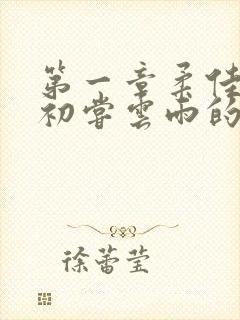 第一章柔佳
初尝云雨的
徐蕾莹